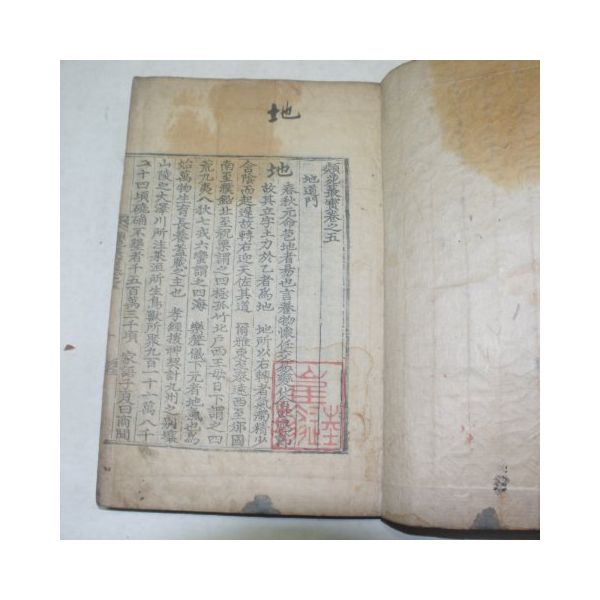 地
類苑叢寶卷之五
地道門
地 春秋元命苞地者易也言養物懷任交易變化含吐應節
故其立字土力於乙者爲地 地所以右轉者氣濁精少
含陰而起遲故轉右迎天佐其道 爾雅東至泰遠西至邠國
南至濮鈆北至祝栗謂之四極孤竹北戶西王母日下謂之四
荒九夷八狄七戎六蠻謂之四海 樂聲儀下元者地氣也爲
始萬物生育長養蓋藏之主也 孝經援神契計九州之別壤
山陵之大澤川所注萊沮所生鳥獸所聚九百一十一萬八千
二十四頃磽确不墾者千五百萬二千頃 家語子夏曰商聞